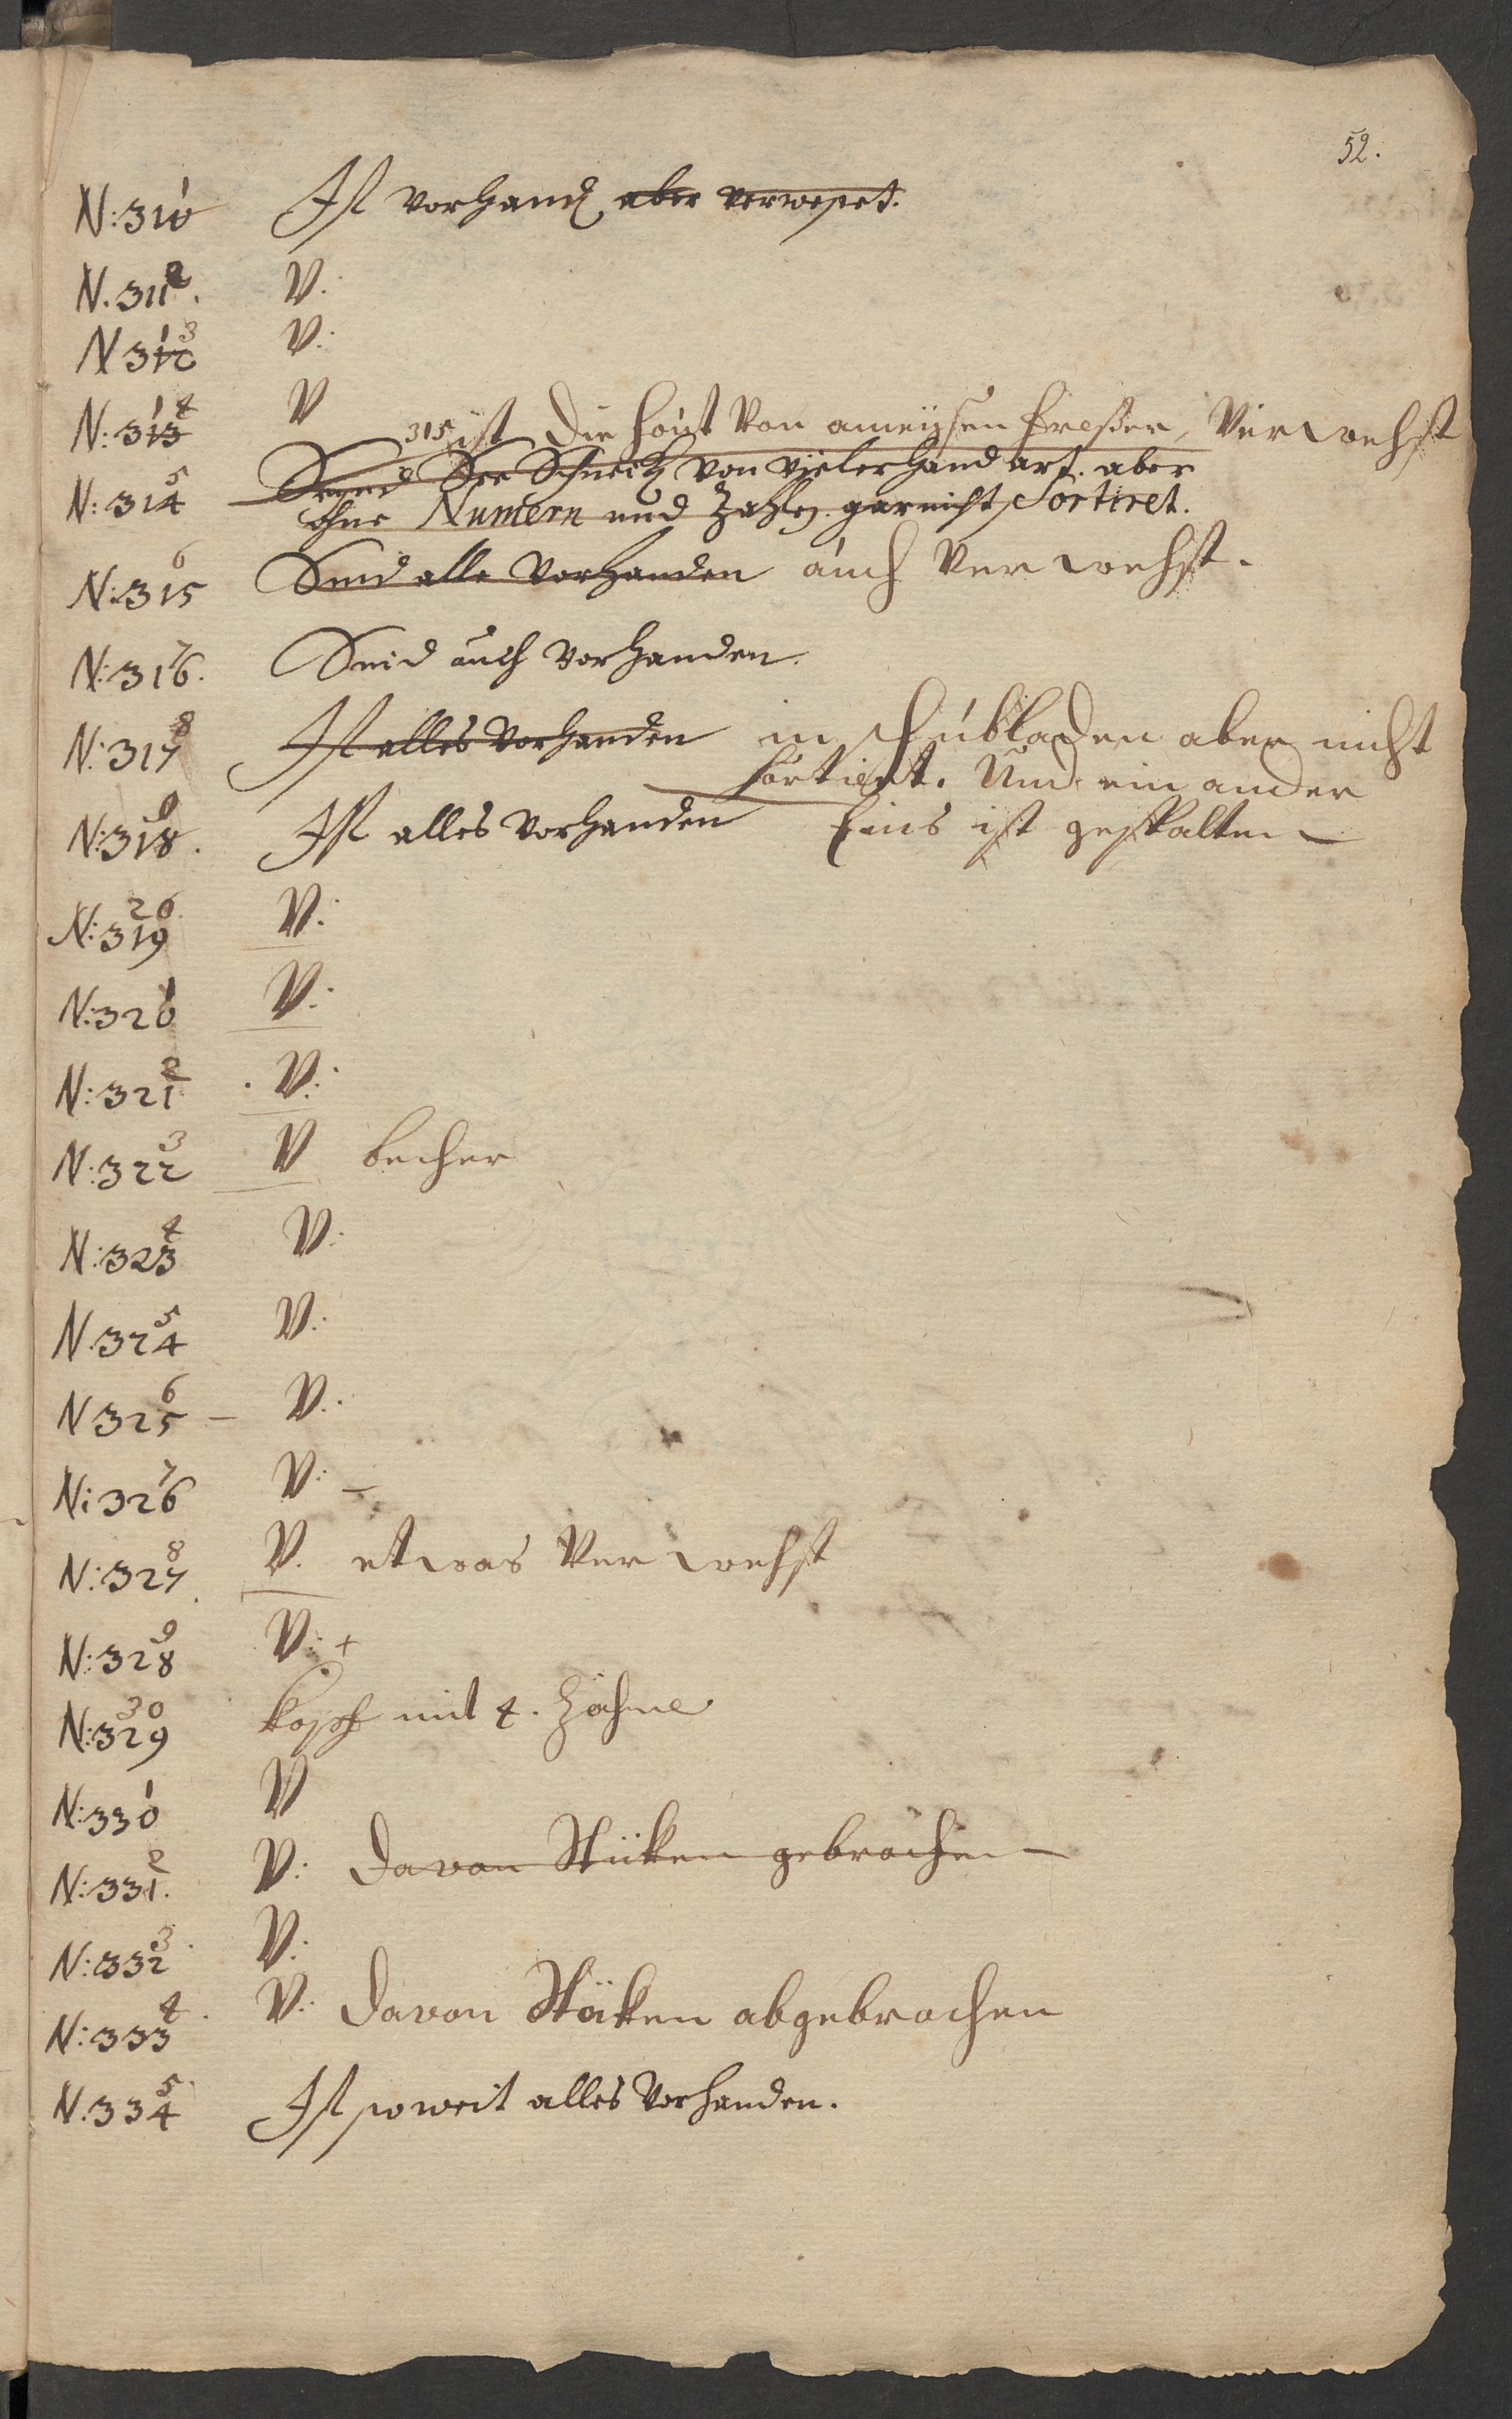 52.
N: 310 1 Ist vorhand aber verweset.
N. 311 2. V.
N 312 3 V:
N: 313 4 V
315 ist die haut Von ameißen freßer, Verwehst
N: 314 5 Seynd See Schneck von vielerhand art. aber
ohne Numern und Zahlen gar nicht Sortiret.
N: 315 6 Sind alle Vorhanden auch Verwehst.
N: 316. 7 Seind auch Vorhanden.
N: 317 8 Ist alles Vorhanden in schubladen aber nicht
sortiert. Und ein ander
N: 318. 9 Ist alles Vorhanden Eins ist gespalten
N: 319 20 V:
N: 320 1 V:
N: 321 2 V:
N: 322 3 V becher
N: 323 4 V:
N. 324 5 V:
N 325 6 V:
N: 326 7 V:
N: 327 8 V. etwas Verwehst
N: 328 9 V: +
N: 329 30 kopf mit 4. Zähne
N: 330 1 V
N: 331. 2 V: davon Stüken gebrochen
N: 332 3 V:
N: 333 4 V: davon Stüken abgebrochen
N. 334 5 Ist so weit alles Vorhanden.